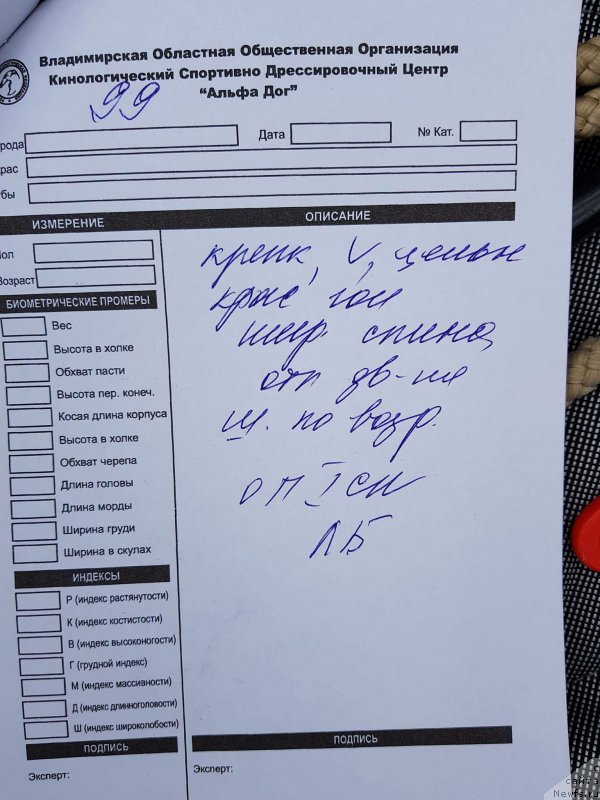 Владимирская Областная Общественная Организация
Кинологический Спортивно Дрессировочный Центр
"Альфа Дог"
99
рода
Дата
№ Кат.
рас
бы
ИЗМЕРЕНИЕ
ОПИСАНИЕ
Пол
Возраст
БИОМЕТРИЧЕСКИЕ ПРОМЕРЫ
Вес
Высота в холке
Обхват пасти
Высота пер. конеч.
Косая длина корпуса
Высота в холке
Обхват черепа
Длина головы
Длина морды
Ширина груди
Ширина в скулах
ИНДЕКСЫ
Р (индекс растянутости)
К (индекс костистости)
В (индекс высоконогости)
Г (грудной индекс)
М (индекс массивности)
Д (индекс длинноголовости)
Ш (индекс широколобости)
ПОДПИСЬ
Эксперт:
крепк, V,
шир спина
отл дв-ия
ш. по возр.
ЛБ
ПОДПИСЬ
Эксперт:
с
сайта
Newfs.ru